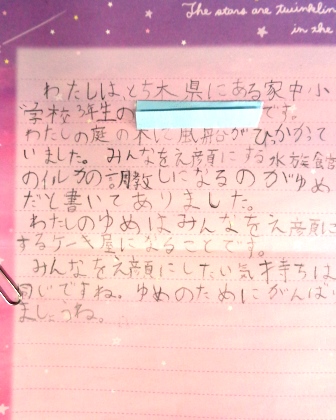 The stars are twinklin
in the
わたしはとち木県にある家中小
学校3年生の です。
わたしの庭の木に風船がひっかかって
いました。みんなをえ顔にする水族館
のイルカの調教しになるのがゆめ
だと書いてありました。
わたしのゆめはみんなをえ顔に
するケーキ屋になることです。
みんなをえ顔にしたい気持ちは
同じですね。ゆめのためにがんば
ましょうね。